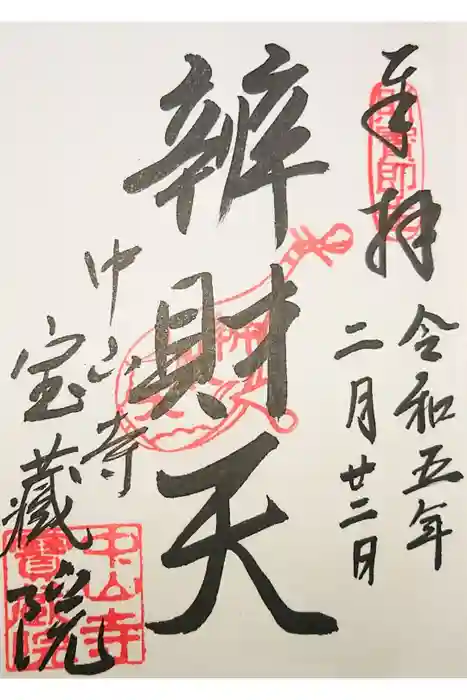 奉拝
令和五年
二月廿二日
辨財天
中山寺
宝蔵院
中山寺
寶蔵院